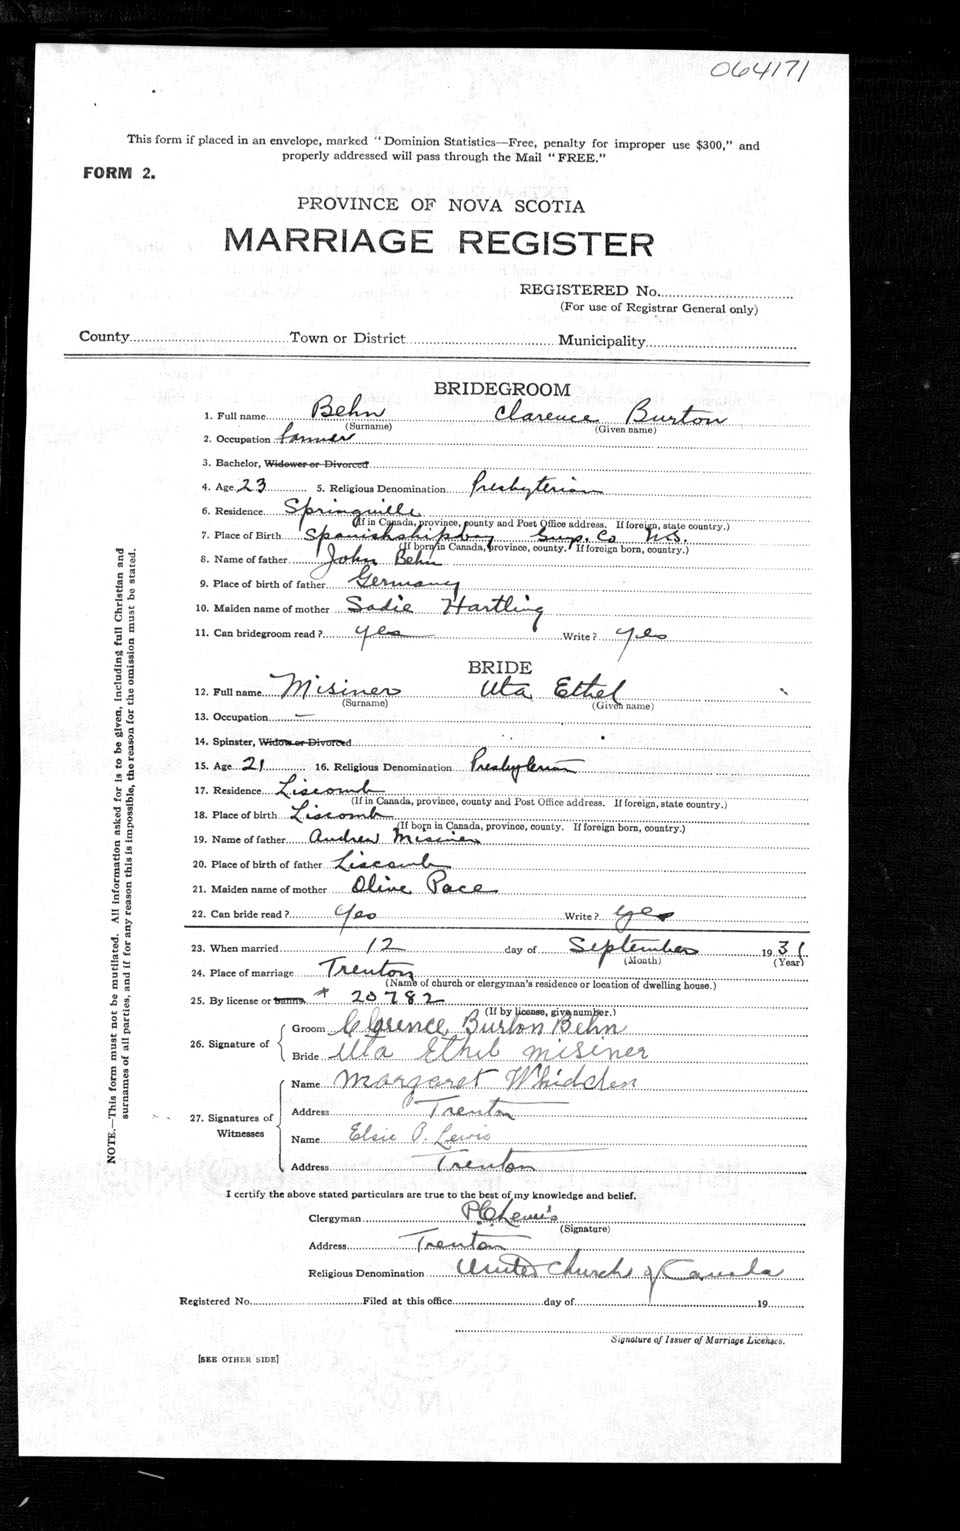 064171
This form if placed in an envelope, marked "Dominion Statistics—Free, penalty for improper use $300," and
properly addressed will pass through the Mail "FREE."
FORM 2.
PROVINCE OF NOVA SCOTIA
MARRIAGE REGISTER
REGISTERED No.
(For use of Registrar General only)
County Town or District Municipality
BRIDEGROOM
1. Full name Behn Clarence Burton
(Surname) (Given name)
2. Occupation farmer
3. Bachelor, Widower or Divorced
4. Age 23 5. Religious Denomination Presbyterian
6. Residence Springville
(If in Canada, province, county and Post Office address. If foreign, state country.)
7. Place of Birth Spanishshipbay Guys. Co N.S.
(If born in Canada, province, county. If foreign born, country.)
8. Name of father John Behn
9. Place of birth of father Germany
10. Maiden name of mother Sadie Hartling
11. Can bridegroom read? yes Write? yes
BRIDE
12. Full name Misiner Uta Ethel
(Surname) (Given name)
13. Occupation —
14. Spinster, Widow or Divorced
15. Age 21 16. Religious Denomination Presbyterian
17. Residence Liscomb
(If in Canada, province, county and Post Office address. If foreign, state country.)
18. Place of birth Liscomb
(If born in Canada, province, county. If foreign born, country.)
19. Name of father Andrew Misiner
20. Place of birth of father Liscomb
21. Maiden name of mother Olive Pace
22. Can bride read? Yes Write? yes
23. When married 12 day of September 1931
(Month) (Year)
24. Place of marriage Trenton
(Name of church or clergyman's residence or location of dwelling house.)
25. By license or banns. 20782
(If by license, give number.)
26. Signature of
Groom Clarence Burton Behn
Bride Uta Ethel Misiner
27. Signatures of Witnesses
Name Margaret Whidden
Address Trenton
Name Elsie P. Lewis
Address Trenton
I certify the above stated particulars are true to the best of my knowledge and belief.
Clergyman P.C. Lewis
(Signature)
Address Trenton
Religious Denomination United Church of Canada
Registered No. Filed at this office day of 19
Signature of Issuer of Marriage Licenses.
[SEE OTHER SIDE]
NOTE.—This form must not be mutilated. All information asked for is to be given, including full Christian and
surnames of all parties, and if for any reason this is impossible, the reason for the omission must be stated.